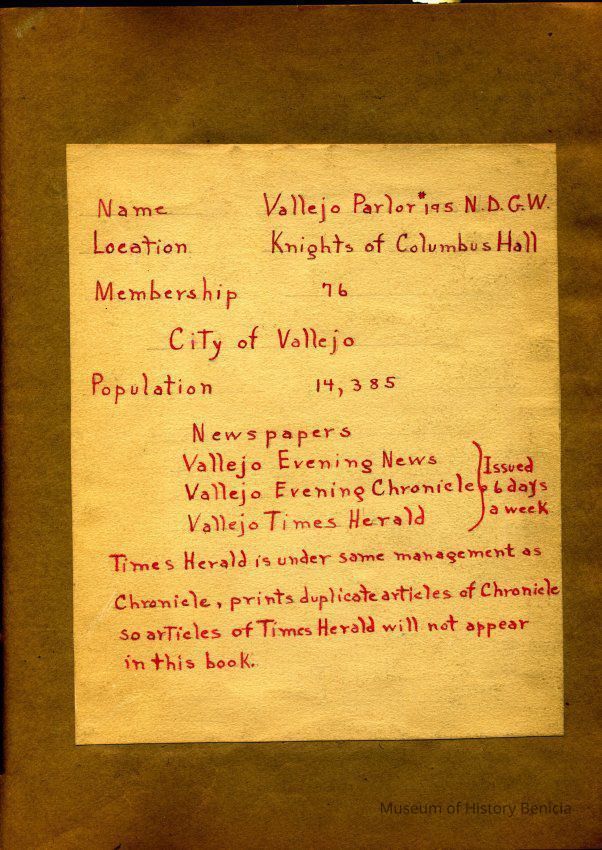 Name Vallejo Parlor #195 N.D.G.W.
Location Knights of Columbus Hall
Membership 76
City of Vallejo
Population 14,385
Newspapers
Vallejo Evening News
Vallejo Evening Chronicle
Vallejo Times Herald
Issued
6 days
a week
Times Herald is under same management as
Chronicle, prints duplicate articles of Chronicle
so articles of Times Herald will not appear
in this book.
Museum of History Benicia